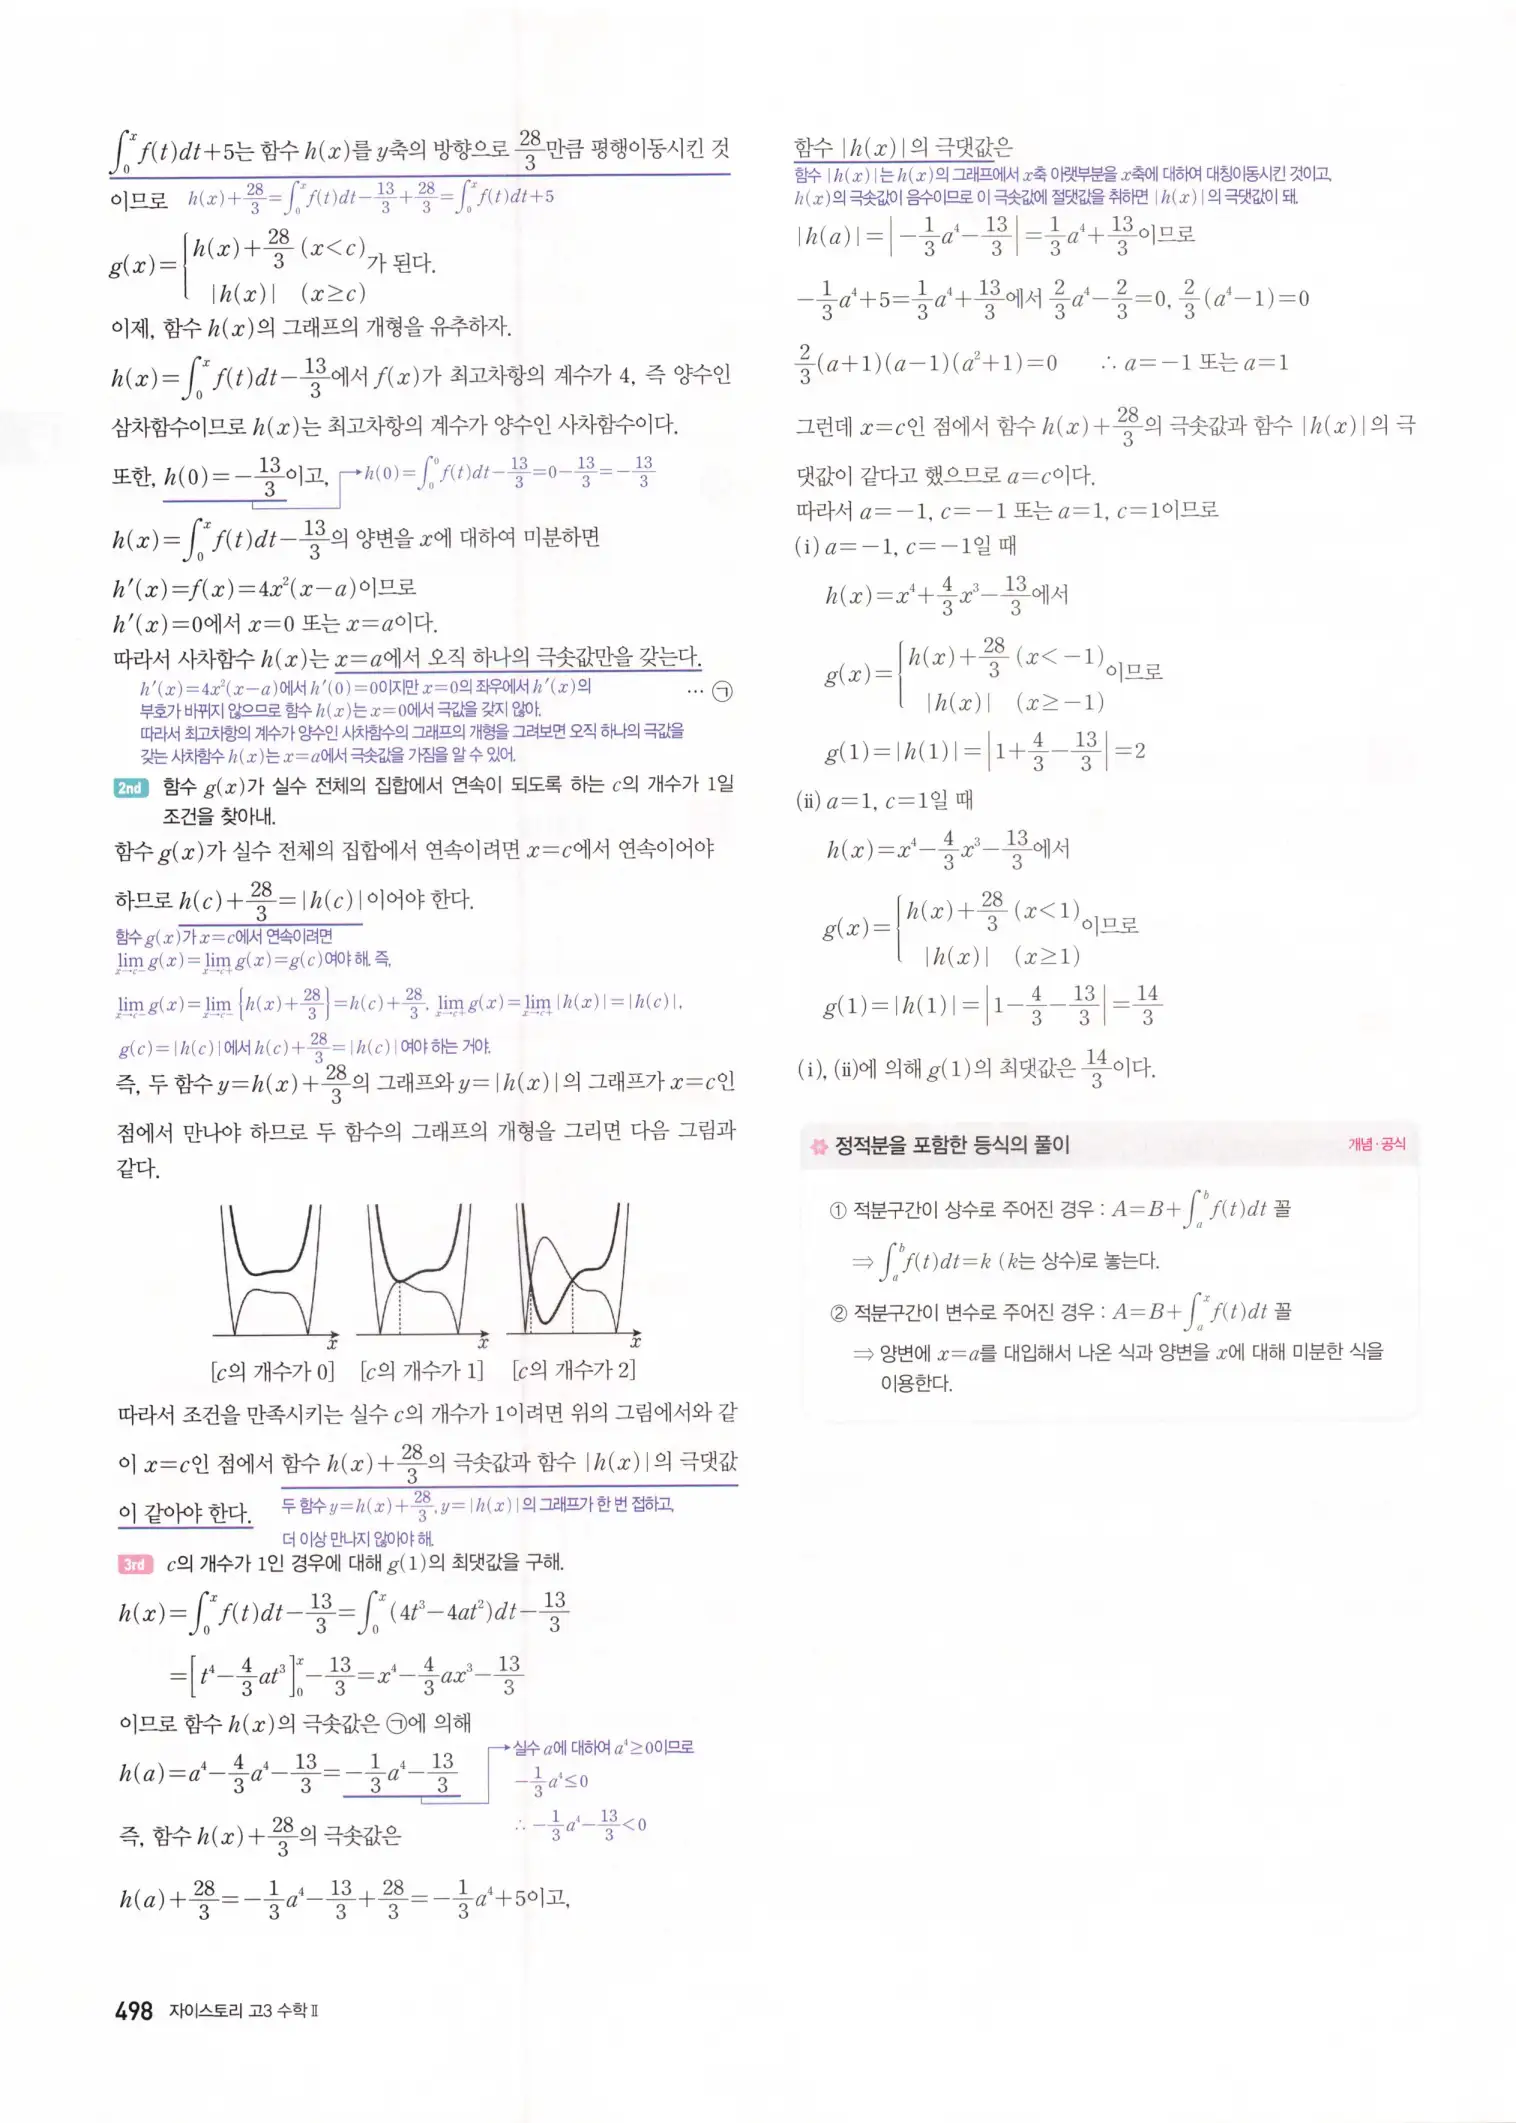 ∫₀ˣ f(t)dt+5는 함수 h(x)를 y축의 방향으로 28/3만큼 평행이동시킨 것
이므로 h(x)+28/3=∫₀ˣ f(t)dt-13/3+28/3=∫₀ˣ f(t)dt+5
g(x)={h(x)+28/3 (x<c), |h(x)| (x≥c)가 된다.
이제, 함수 h(x)의 그래프의 개형을 유추하자.
h(x)=∫₀ˣ f(t)dt-13/3에서 f(x)가 최고차항의 계수가 4, 즉 양수인
삼차함수이므로 h(x)는 최고차항의 계수가 양수인 사차함수이다.
또한, h(0)=-13/3이고, h(0)=∫₀⁰ f(t)dt-13/3=0-13/3=-13/3
h(x)=∫₀ˣ f(t)dt-13/3의 양변을 x에 대하여 미분하면
h′(x)=f(x)=4x²(x-a)이므로
h′(x)=0에서 x=0 또는 x=a이다.
따라서 사차함수 h(x)는 x=a에서 오직 하나의 극솟값만을 갖는다.
… ㉠
h′(x)=4x²(x-a)에서 h′(0)=0이지만 x=0의 좌우에서 h′(x)의
부호가 바뀌지 않으므로 함수 h(x)는 x=0에서 극값을 갖지 않아.
따라서 최고차항의 계수가 양수인 사차함수의 그래프의 개형을 그려보면 오직 하나의 극값을
갖는 사차함수 h(x)는 x=a에서 극솟값을 가짐을 알 수 있어.
2nd 함수 g(x)가 실수 전체의 집합에서 연속이 되도록 하는 c의 개수가 1일
조건을 찾아내.
함수 g(x)가 실수 전체의 집합에서 연속이려면 x=c에서 연속이어야
하므로 h(c)+28/3=|h(c)|이어야 한다.
함수 g(x)가 x=c에서 연속이려면
lim(x→c-) g(x)=lim(x→c+) g(x)=g(c)여야 해. 즉,
lim(x→c-) g(x)=lim(x→c-) {h(x)+28/3}=h(c)+28/3, lim(x→c+) g(x)=lim(x→c+) |h(x)|=|h(c)|,
g(c)=|h(c)|에서 h(c)+28/3=|h(c)|여야 하는 거야.
즉, 두 함수 y=h(x)+28/3의 그래프와 y=|h(x)|의 그래프가 x=c인
점에서 만나야 하므로 두 함수의 그래프의 개형을 그리면 다음 그림과
같다.
x x x
[c의 개수가 0] [c의 개수가 1] [c의 개수가 2]
따라서 조건을 만족시키는 실수 c의 개수가 1이려면 위의 그림에서와 같
이 x=c인 점에서 함수 h(x)+28/3의 극솟값과 함수 |h(x)|의 극댓값
이 같아야 한다. 두 함수 y=h(x)+28/3, y=|h(x)|의 그래프가 한 번 접하고,
더 이상 만나지 않아야 해.
3rd c의 개수가 1인 경우에 대해 g(1)의 최댓값을 구해.
h(x)=∫₀ˣ f(t)dt-13/3=∫₀ˣ (4t³-4at²)dt-13/3
=[t⁴-4/3at³]₀ˣ-13/3=x⁴-4/3ax³-13/3
이므로 함수 h(x)의 극솟값은 ㉠에 의해
h(a)=a⁴-4/3a⁴-13/3=-1/3a⁴-13/3
실수 a에 대하여 a⁴≥0이므로
-1/3a⁴≤0
∴ -1/3a⁴-13/3<0
즉, 함수 h(x)+28/3의 극솟값은
h(a)+28/3=-1/3a⁴-13/3+28/3=-1/3a⁴+5이고,
함수 |h(x)|의 극댓값은
함수 |h(x)|는 h(x)의 그래프에서 x축 아랫부분을 x축에 대하여 대칭이동시킨 것이고,
h(x)의 극솟값이 음수이므로 이 극솟값에 절댓값을 취하면 |h(x)|의 극댓값이 돼.
|h(a)|=|-1/3a⁴-13/3|=1/3a⁴+13/3이므로
-1/3a⁴+5=1/3a⁴+13/3에서 2/3a⁴-2/3=0, 2/3(a⁴-1)=0
2/3(a+1)(a-1)(a²+1)=0 ∴ a=-1 또는 a=1
그런데 x=c인 점에서 함수 h(x)+28/3의 극솟값과 함수 |h(x)|의 극
댓값이 같다고 했으므로 a=c이다.
따라서 a=-1, c=-1 또는 a=1, c=1이므로
(i) a=-1, c=-1일 때
h(x)=x⁴+4/3x³-13/3에서
g(x)={h(x)+28/3 (x<-1), |h(x)| (x≥-1)이므로
g(1)=|h(1)|=|1+4/3-13/3|=2
(ii) a=1, c=1일 때
h(x)=x⁴-4/3x³-13/3에서
g(x)={h(x)+28/3 (x<1), |h(x)| (x≥1)이므로
g(1)=|h(1)|=|1-4/3-13/3|=14/3
(i), (ii)에 의해 g(1)의 최댓값은 14/3이다.
정적분을 포함한 등식의 풀이 개념·공식
① 적분구간이 상수로 주어진 경우 : A=B+∫ₐᵇ f(t)dt 꼴
⇒ ∫ₐᵇ f(t)dt=k (k는 상수)로 놓는다.
② 적분구간이 변수로 주어진 경우 : A=B+∫ₐˣ f(t)dt 꼴
⇒ 양변에 x=a를 대입해서 나온 식과 양변을 x에 대해 미분한 식을
이용한다.
498 자이스토리 고3 수학 Ⅱ